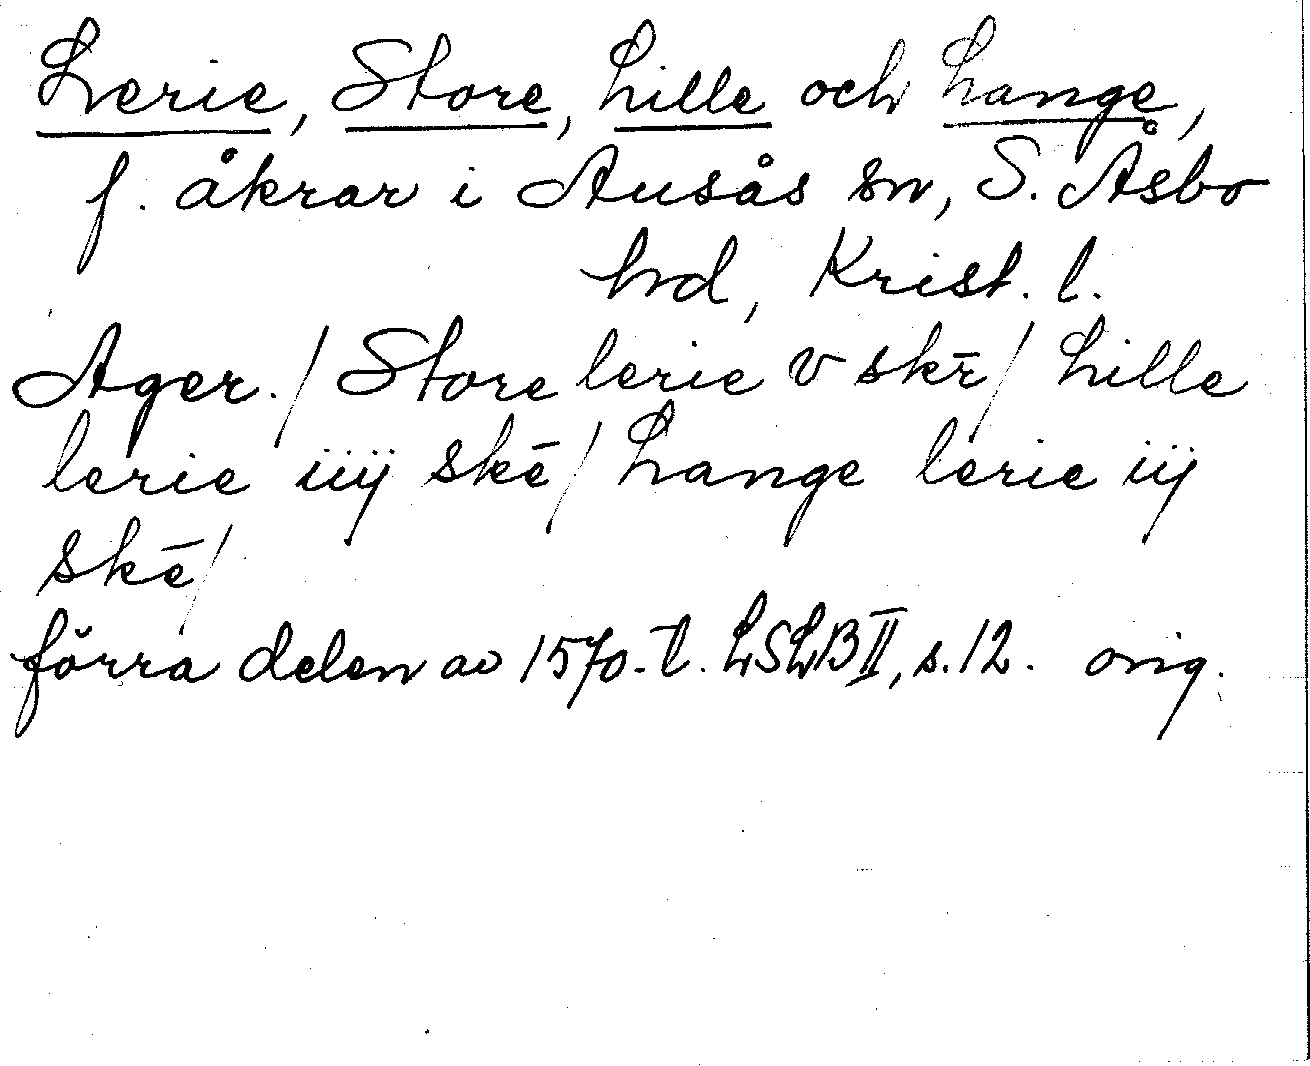 Lerie, Store, Lille och Lange,
f. åkrar i Ausås sn, S. Åsbo
hd, Krist. l.
Ager. / Store lerie v skē / Lille
lerie iiij skē / Lange lerie iij
skē /
förra delen av 1570-t. LSLB II, s. 12. orig.